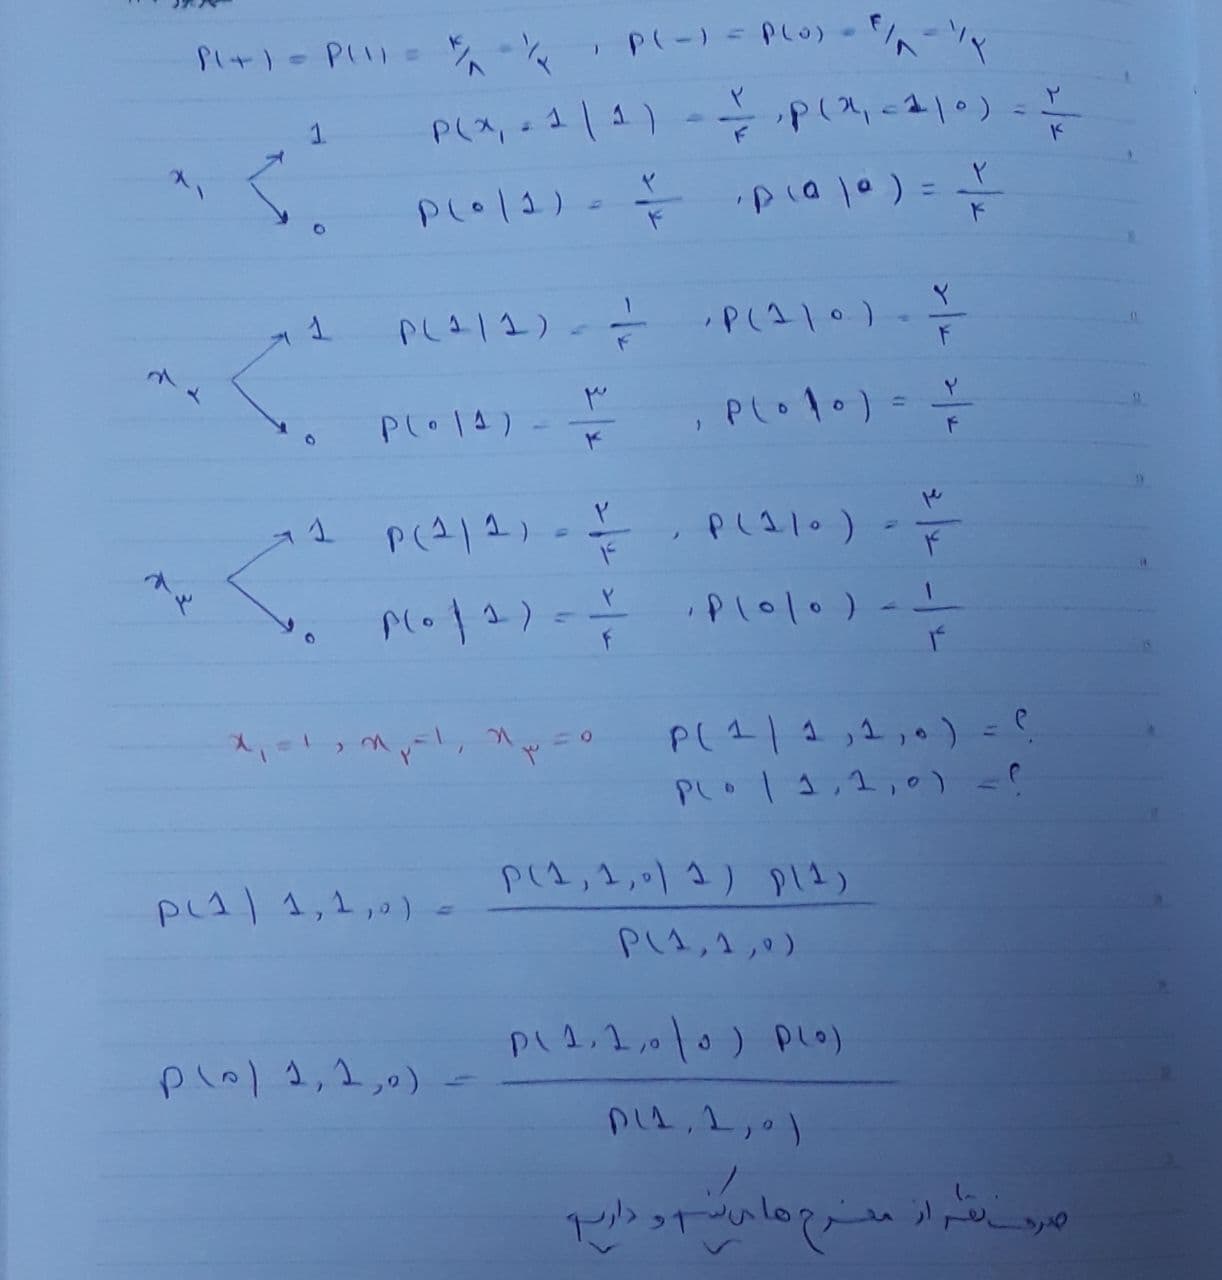 P(+) = P(1) = ۴/۸ = ۱/۲ , P(-) = P(0) = ۴/۸ = ۱/۲
1 P(x₁ = 1 | 1) = ۲/۴ , P(x₁ = 1 | 0) = ۲/۴
x₁
0 P(0 | 1) = ۲/۴ , P(0 | 0) = ۲/۴
1 P(1 | 1) = ۱/۴ , P(1 | 0) = ۲/۴
x۲
0 P(0 | 1) = ۳/۴ , P(0 | 0) = ۲/۴
1 P(1 | 1) = ۲/۴ , P(1 | 0) = ۳/۴
x۳
0 P(0 | 1) = ۲/۴ , P(0 | 0) = ۱/۴
x₁ = 1 , x۲ = 1 , x۳ = 0 P(1 | 1, 1, 0) = ؟
P(0 | 1, 1, 0) = ؟
P(1 | 1, 1, 0) = P(1, 1, 0 | 1) P(1) / P(1, 1, 0)
P(0 | 1, 1, 0) = P(1, 1, 0 | 0) P(0) / P(1, 1, 0)
از مخرج ها و داریم